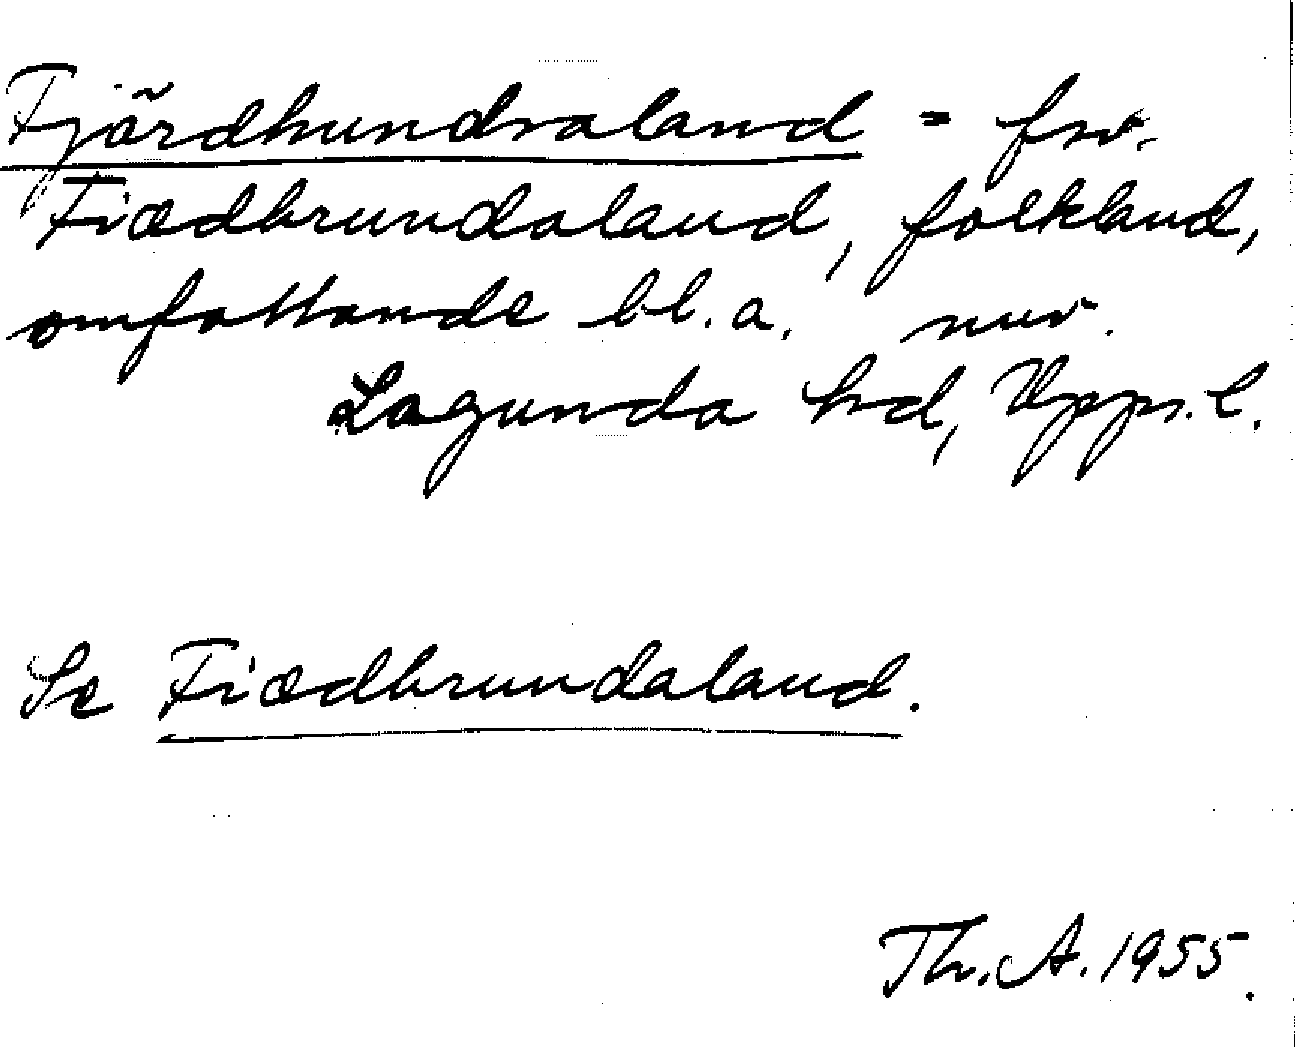 Fjärdhundraland = fsv.
Fiædhrundaland, folkland,
omfattande bl.a. nuv.
Lagunda hd, Upps.l.
Se Fiædhrundaland.
Th. A. 1955.